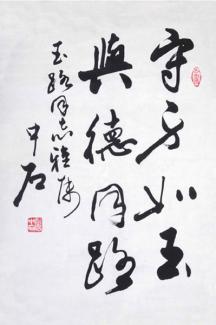 守方如玉
與德同路
玉路同志雅属
中石